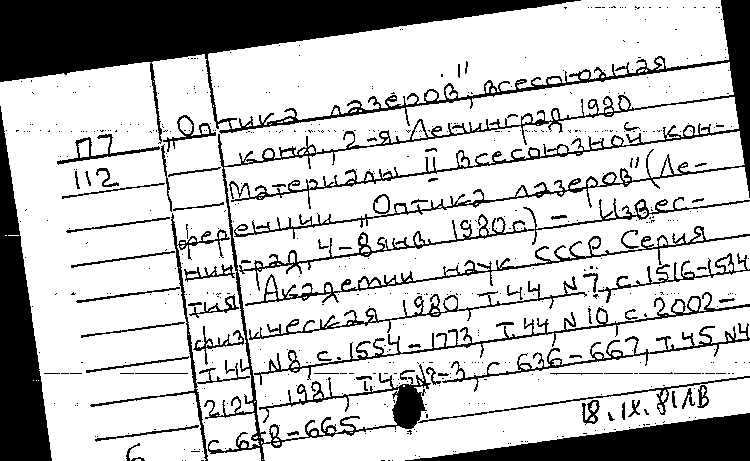 П7
112
„Оптика лазеров", всесоюзная
конф., 2-я. Ленинград. 1980
Материалы II всесоюзной кон-
ференции „Оптика лазеров" (Ле-
нинград, 4-8 янв. 1980г) - Извес-
тия Академии наук СССР. Серия
физическая, 1980, т.44, N7, с.1516-1534
т.44, N8, с.1554-1773, т.44, N10, с.2002-
2124, 1981, т.45 N2-3, с.636-667, т.45, N4
с.658-665.
18.IX.81 ЛВ
Б